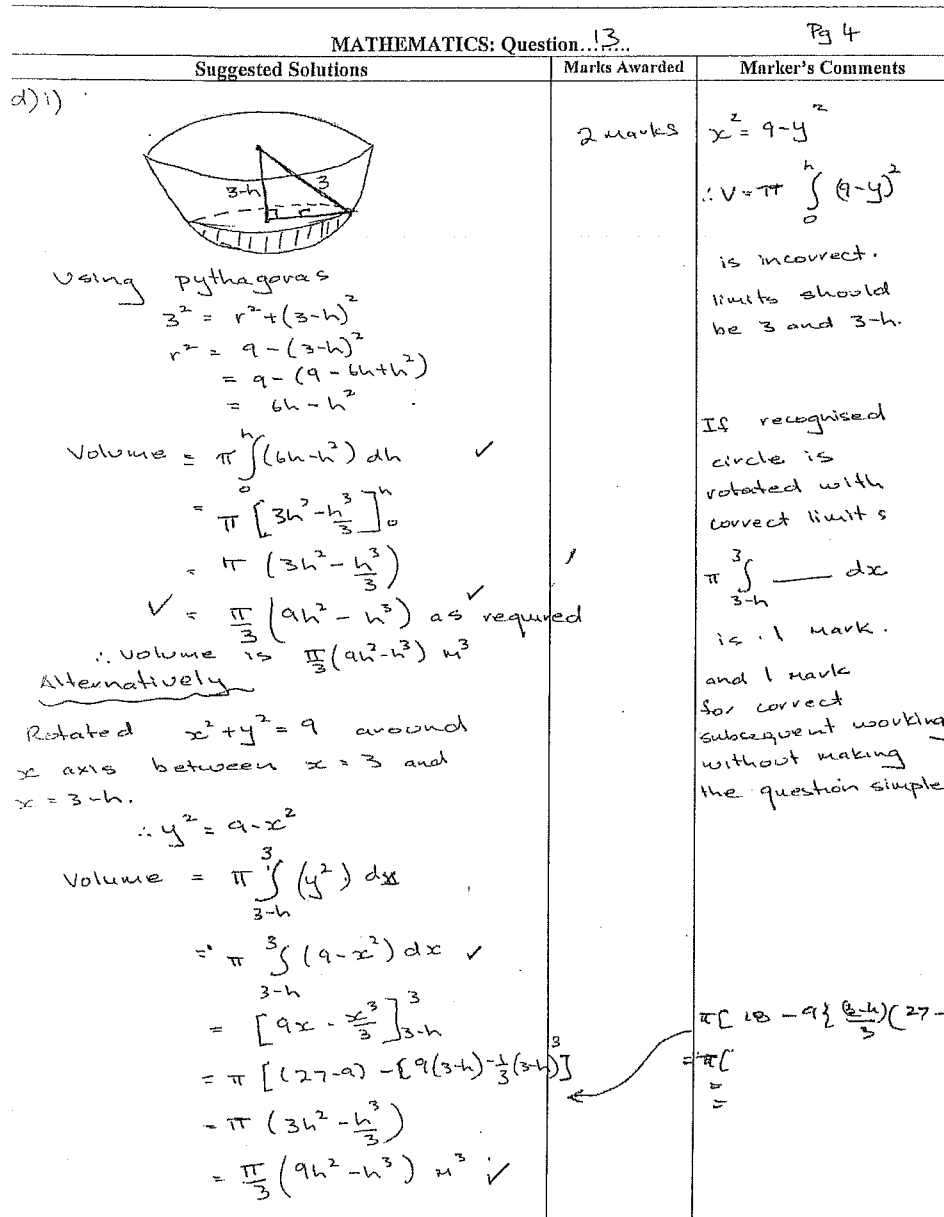 MATHEMATICS: Question...13... Pg 4
Suggested Solutions
Marks Awarded
Marker's Comments
d) i)
3-h 3
r
Using pythagoras
3² = r² + (3-h)²
r² = 9 - (3-h)²
= 9 - (9 - 6h + h²)
= 6h - h²
Volume = π ∫₀ʰ (6h - h²) dh ✓
= π [3h² - h³/3]₀ʰ
= π (3h² - h³/3)
✓ = π/3 (9h² - h³) as required ✓
∴ volume is π/3 (9h² - h³) m³
Alternatively
Rotated x² + y² = 9 around
x axis between x = 3 and
x = 3-h.
∴ y² = 9 - x²
Volume = π ∫₃₋ₕ³ (y²) dx
= π ∫₃₋ₕ³ (9 - x²) dx ✓
= [9x - x³/3]₃₋ₕ³
= π [(27-9) - [9(3-h) - 1/3 (3-h)³]
= π (3h² - h³/3)
= π/3 (9h² - h³) m³ ✓
2 marks
x² = 9 - y²
∴ V = π ∫₀ʰ (9-y)²
is incorrect.
limits should
be 3 and 3-h.
If recognised
circle is
rotated with
correct limits
π ∫₃₋ₕ³ ___ dx
is 1 mark.
and 1 mark
for correct
subsequent working
without making
the question simple
π[ 18 - 9{ (3-h)/3 (27 -
= π(
=
=